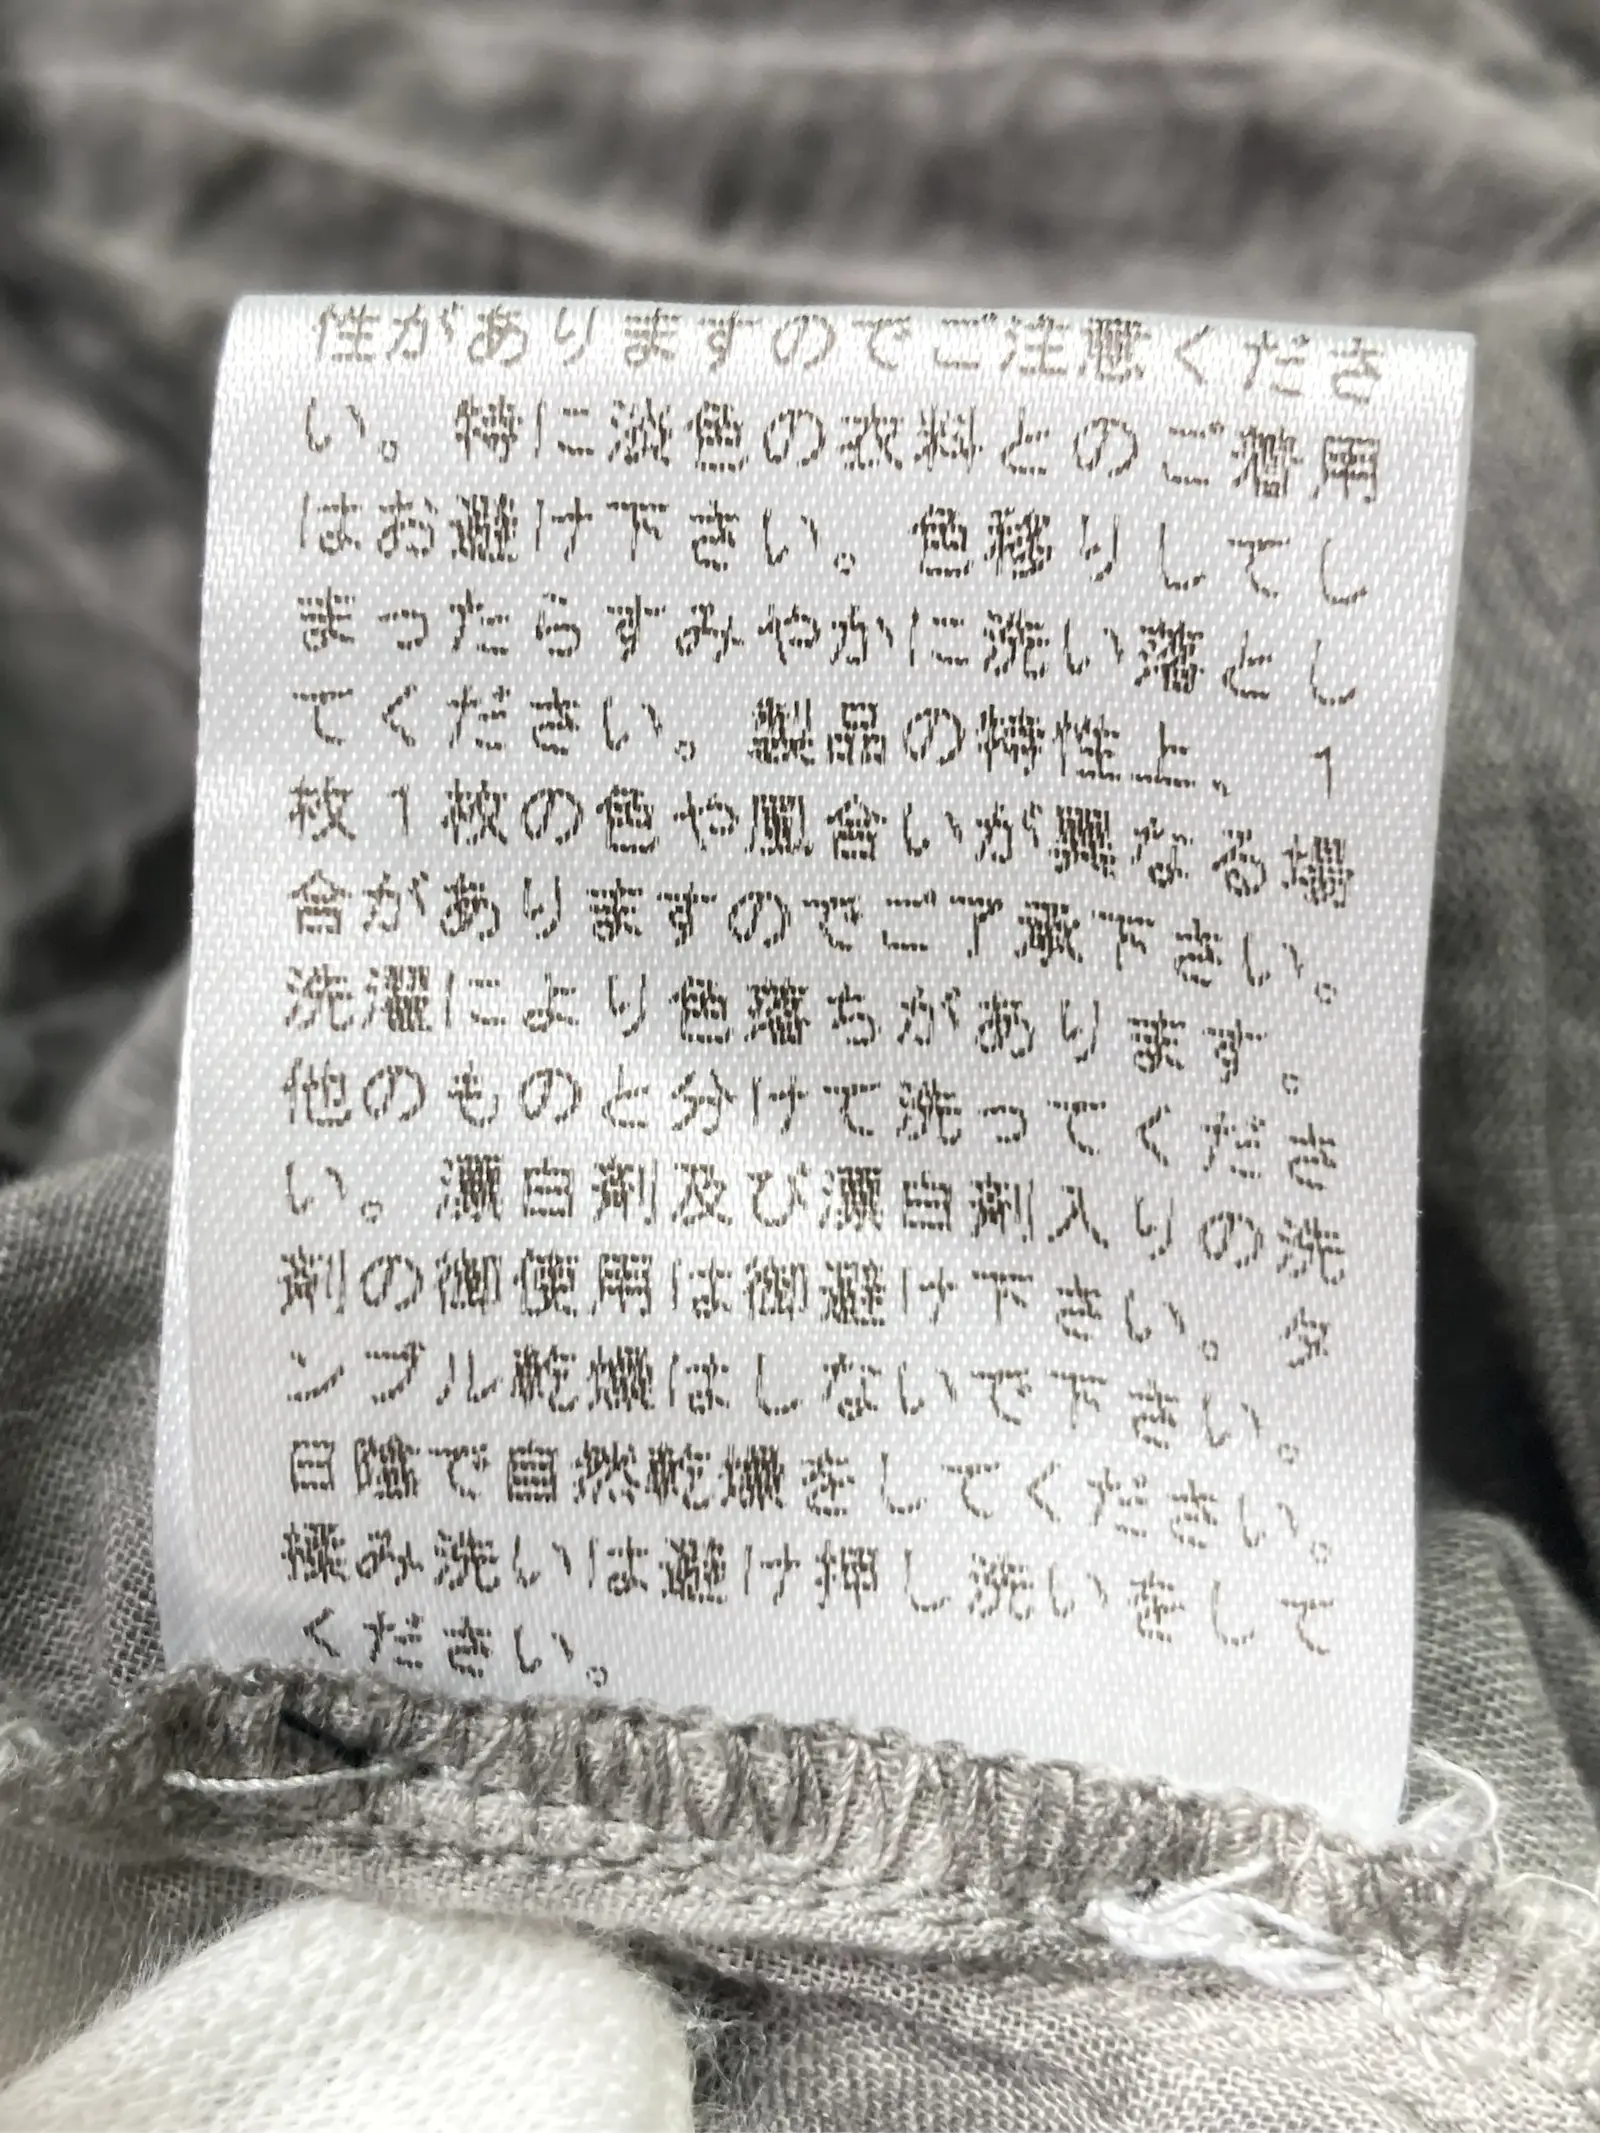 性がありますのでご注意くださ
い。特に淡色の衣料とのご着用
はお避け下さい。色移りしてし
まったらすみやかに洗い落とし
てください。製品の特性上、1
枚1枚の色や風合いが異なる場
合がありますのでご了承下さい。
洗濯により色落ちがあります。
他のものと分けて洗ってくださ
い。漂白剤及び漂白剤入りの洗
剤の御使用は御避け下さい。タ
ンブル乾燥はしないで下さい。
日陰で自然乾燥をしてください。
揉み洗いは避け押し洗いをして
ください。